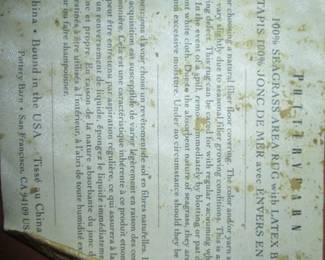 POTTERY BARN
100% SEAGRASS AREA RUG with LATEX B
TAPIS 100% JONC DE MER avec ENVERS EN
for choosing a natural fiber floor covering. The color and/or yarn s
vary slightly due to seasonal fiber growing conditions. This is a
This rug can be cared for with regular vacuuming wh
In the event of a spill, respond immediately by blotting or
nt white cloth. Due to the absorbent nature of seagrass, they are
nd excessive moisture. Under no circumstance should they be
mercions d'avoir choisi un revêtement de sol en fibres naturelles.
acquisition est susceptible de varier légèrement en raison des co
Cela est une caractéristique inhérente à ce produit
peut être entretenu par aspiration régulière, ce qui assurera la
un renversement de liquide, épongez le liquide immédiate
nc et propre. En raison de la nature absorbante du jonc d
estinés à être utilisés à l'intérieur, à l'abri de toute humidité ex
ur les faire shampooiner.
hina • Bound in the USA Tissé au China
Pottery Barn • San Francisco, CA 94109 US